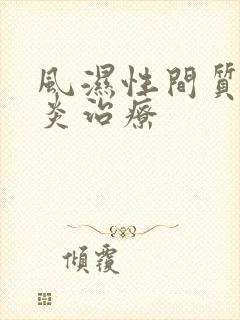 風濕性間質
炎治療
傾覆